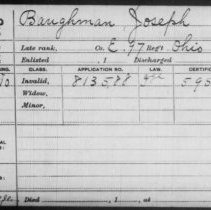 Baughman Joseph
Late rank, Co. E. 97 Reg't Ohio
Enlisted , 1 Discharged
CLASS. APPLICATION NO. LAW. CERTIF
Invalid, 813,588
Widow,
Minor,
Died , 1 , at